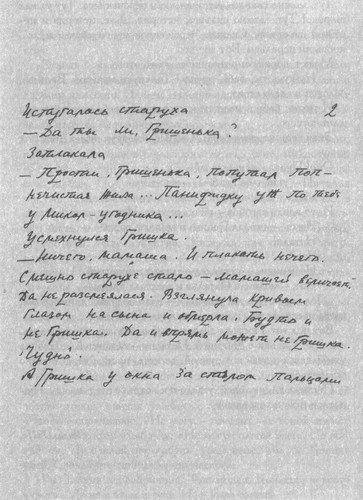 Испугалась старуха 2
— Да ты ли, Гришенька?
Заплакала
— Прости, Гришенька, попутал поп-
нечистая жила... Панифидку уж по тебе
у Микол-угодника...
Усмехнулся Гришка.
— Ничего, мамаша. И плакать нечего.
Смешно старухе стало – мамашей величает.
Да не рассмеялася. Взглянула кривым
глазом на сына и обмерла. Будто и
не Гришка. Да и впрямь может не Гришка.
Чудно.
А Гришка у окна за столом пальцами